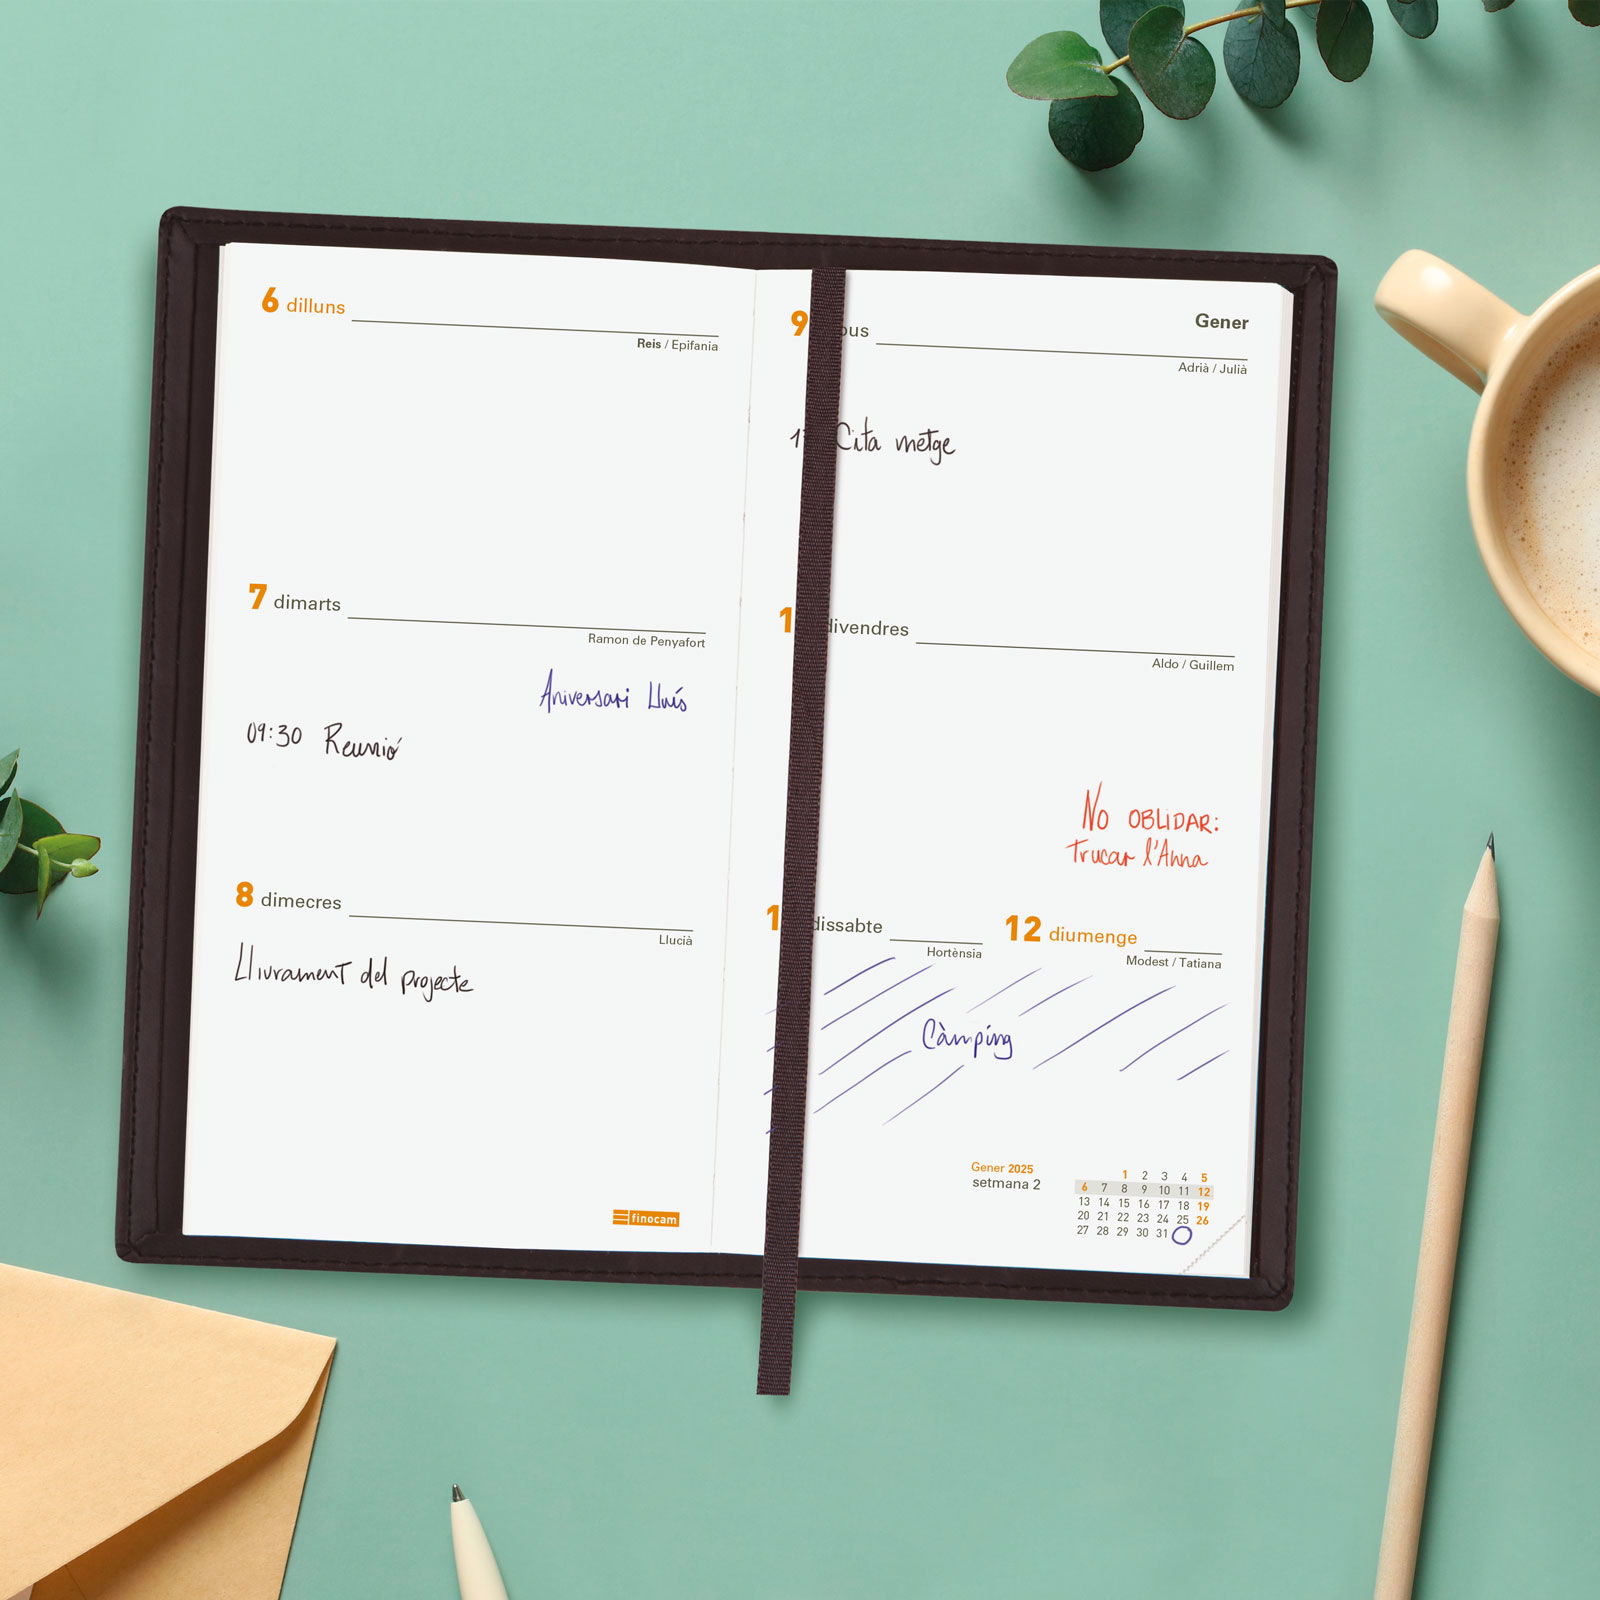 6 dilluns
Reis / Epifania
7 dimarts
Ramon de Penyafort
Aniversari Lluís
09:30 Reunió
8 dimecres
Llucià
Lliurament del projecte
finocam
9 ous
Gener
Adrià / Julià
Cita metge
1 divendres
Aldo / Guillem
No OBLIDAR:
Trucar l'Anna
1 dissabte
Hortènsia
12 diumenge
Modest / Tatiana
Càmping
Gener 2025
setmana 2
1 2 3 4 5
6 7 8 9 10 11 12
13 14 15 16 17 18 19
20 21 22 23 24 25 26
27 28 29 30 31